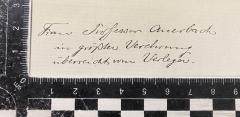 Frau Professor Auerbach
in größter Verehrung
überreicht vom Verleger.